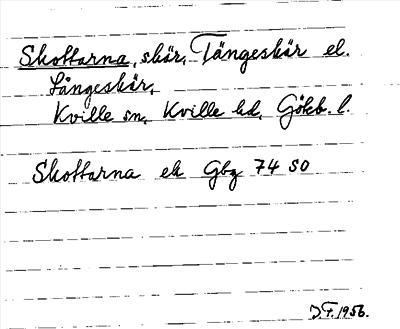 Skottarna, skär, Tångeskär el.
Långeskär,
Kville sn, Kville hd, Göteb. l.
Skottarna ek Gbg 74 SO
J.F. 1956.